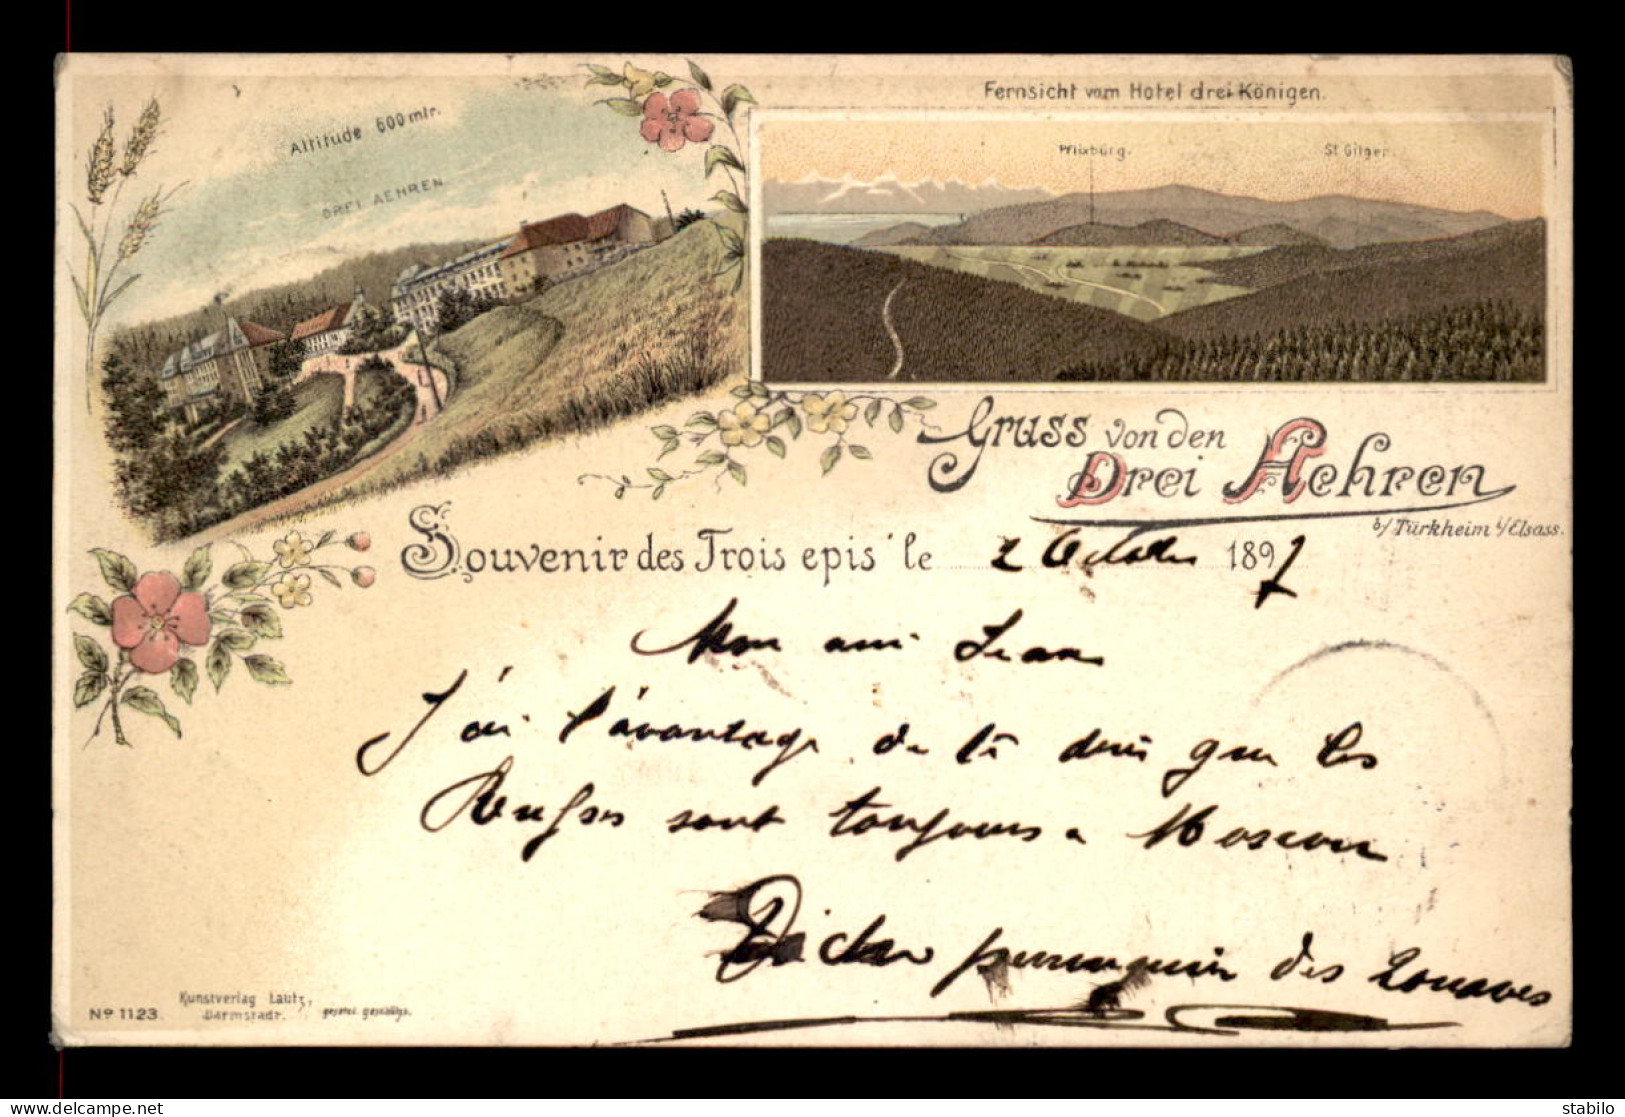 Altitude 600 mtr.
DREI AEHREN
Fernsicht vom Hotel drei Königen.
St Gilgen.
Gruss von den
Drei Aehren
b/ Türkheim i/Elsass.
Souvenir des Trois epis le 2 Octobre 1897
Mon ami Jean
J'ai l'avantage de te dire que les
Russes sont toujours a Moscou
des Zouaves
Nº 1123.
Kunstverlag Lautz,
Darmstadt.
gesetzl. geschützt.
stabilo